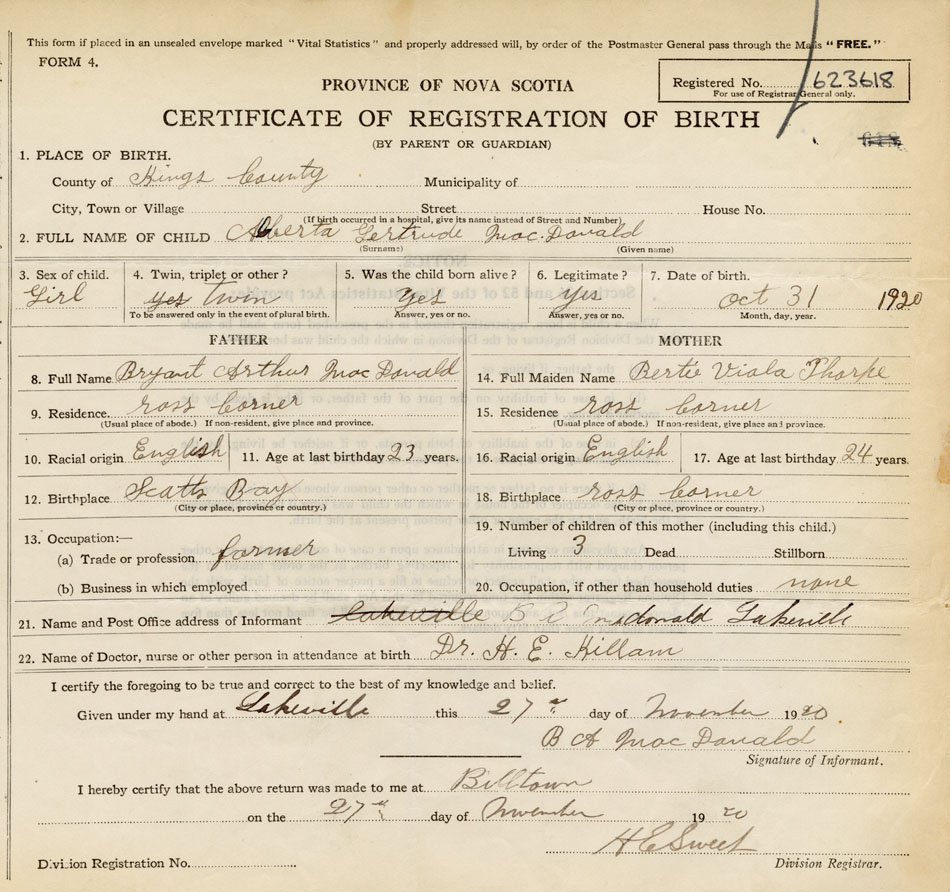 This form if placed in an unsealed envelope marked "Vital Statistics" and properly addressed will, by order of the Postmaster General pass through the Mails "FREE."
FORM 4.
Registered No. 623618
For use of Registrar General only.
PROVINCE OF NOVA SCOTIA
CERTIFICATE OF REGISTRATION OF BIRTH
618
(BY PARENT OR GUARDIAN)
1. PLACE OF BIRTH.
County of Kings County Municipality of
City, Town or Village Street House No.
(If birth occurred in a hospital, give its name instead of Street and Number)
2. FULL NAME OF CHILD Alberta Gertrude Mac Donald
(Surname) (Given name)
3. Sex of child. 4. Twin, triplet or other? 5. Was the child born alive? 6. Legitimate? 7. Date of birth.
Girl yes twin Yes Yes Oct 31 1920
To be answered only in the event of plural birth. Answer, yes or no. Answer, yes or no. Month, day, year.
FATHER MOTHER
8. Full Name Bryant Arthur Mac Donald 14. Full Maiden Name Bertie Viola Thorpe
9. Residence. ross Corner 15. Residence ross Corner
(Usual place of abode.) If non-resident, give place and province. (Usual place of abode.) If non-resident, give place and province.
10. Racial origin English 11. Age at last birthday 23 years. 16. Racial origin English 17. Age at last birthday 24 years.
12. Birthplace Scatts Bay 18. Birthplace ross Corner
(City or place, province or country.) (City or place, province or country.)
19. Number of children of this mother (including this child.)
13. Occupation:—
(a) Trade or profession farmer Living 3 Dead Stillborn
(b) Business in which employed 20. Occupation, if other than household duties none
21. Name and Post Office address of Informant Lakeville B A Macdonald Lakeville
22. Name of Doctor, nurse or other person in attendance at birth Dr. H. E. Killam
I certify the foregoing to be true and correct to the best of my knowledge and belief.
Given under my hand at Lakeville this 27th day of November 1920
B A Mac Donald
Signature of Informant.
I hereby certify that the above return was made to me at Billtown
on the 27th day of November 1920
H E Sweet
Division Registration No. Division Registrar.